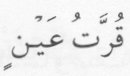 قُرَّتُ عَيْنٍ